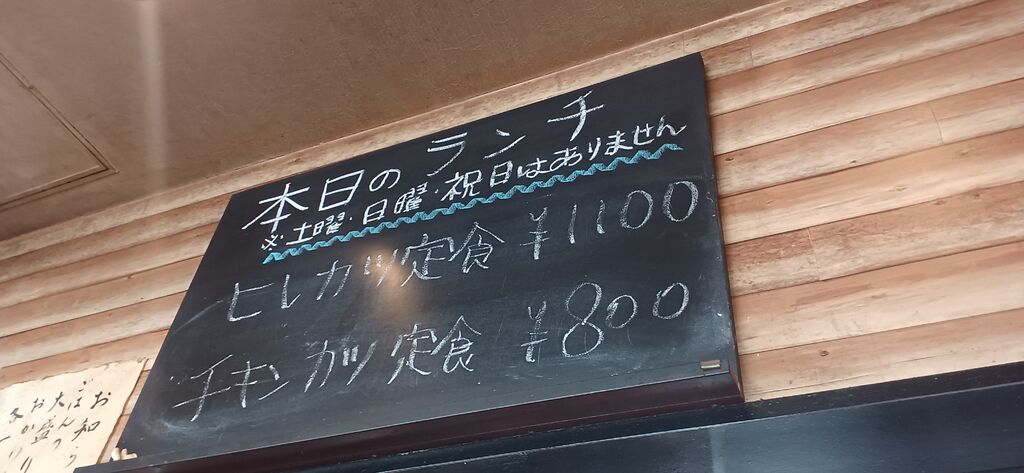 本日のランチ
※土曜・日曜・祝日はありません
ヒレカツ定食 ¥1100
チキンカツ定食 ¥800
お知ら
ごはんの
大盛り